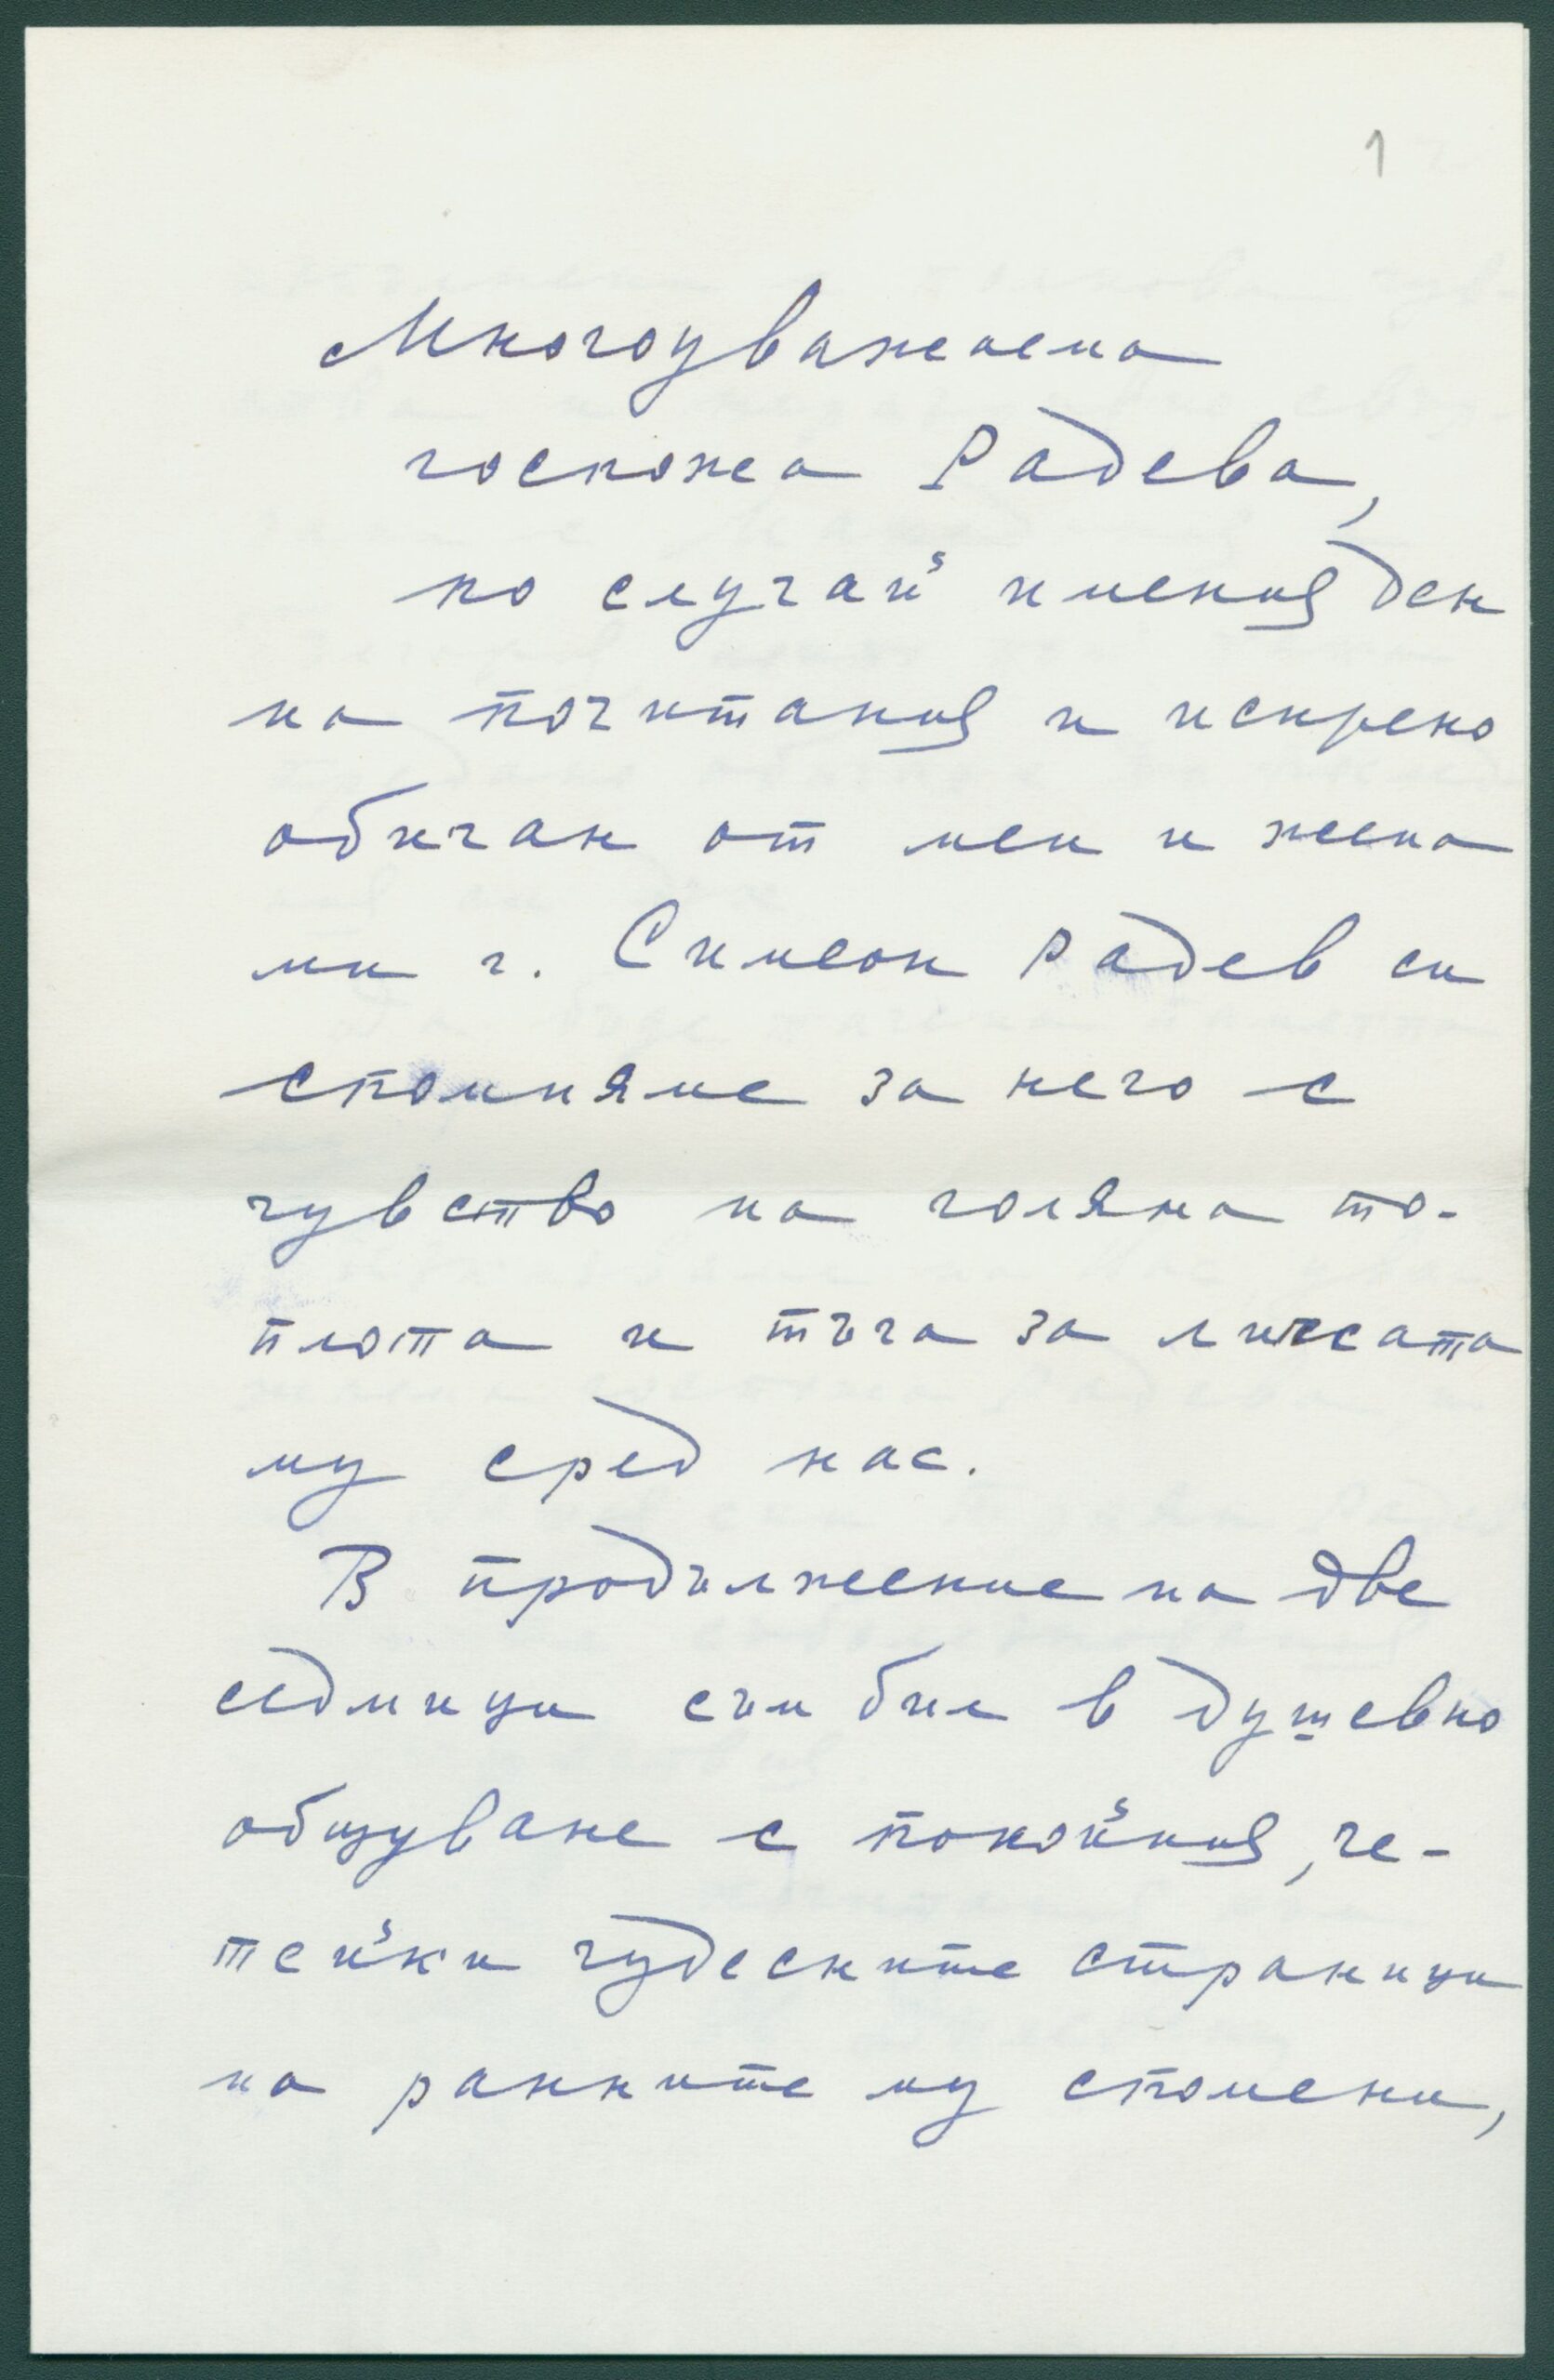 1
Многоуважаема
госпожа Радева,
по случай именния ден
на почитания и искрено
обичан от мен и жена
ми г. Симеон Радев си
спомняме за него с
чувство на голяма то-
плота и тъга за липсата
му сред нас.
В продължение на две
седмици съм бил в душевно
общуване с покойния, че-
тейки чудесните страници
на ранните му спомени,